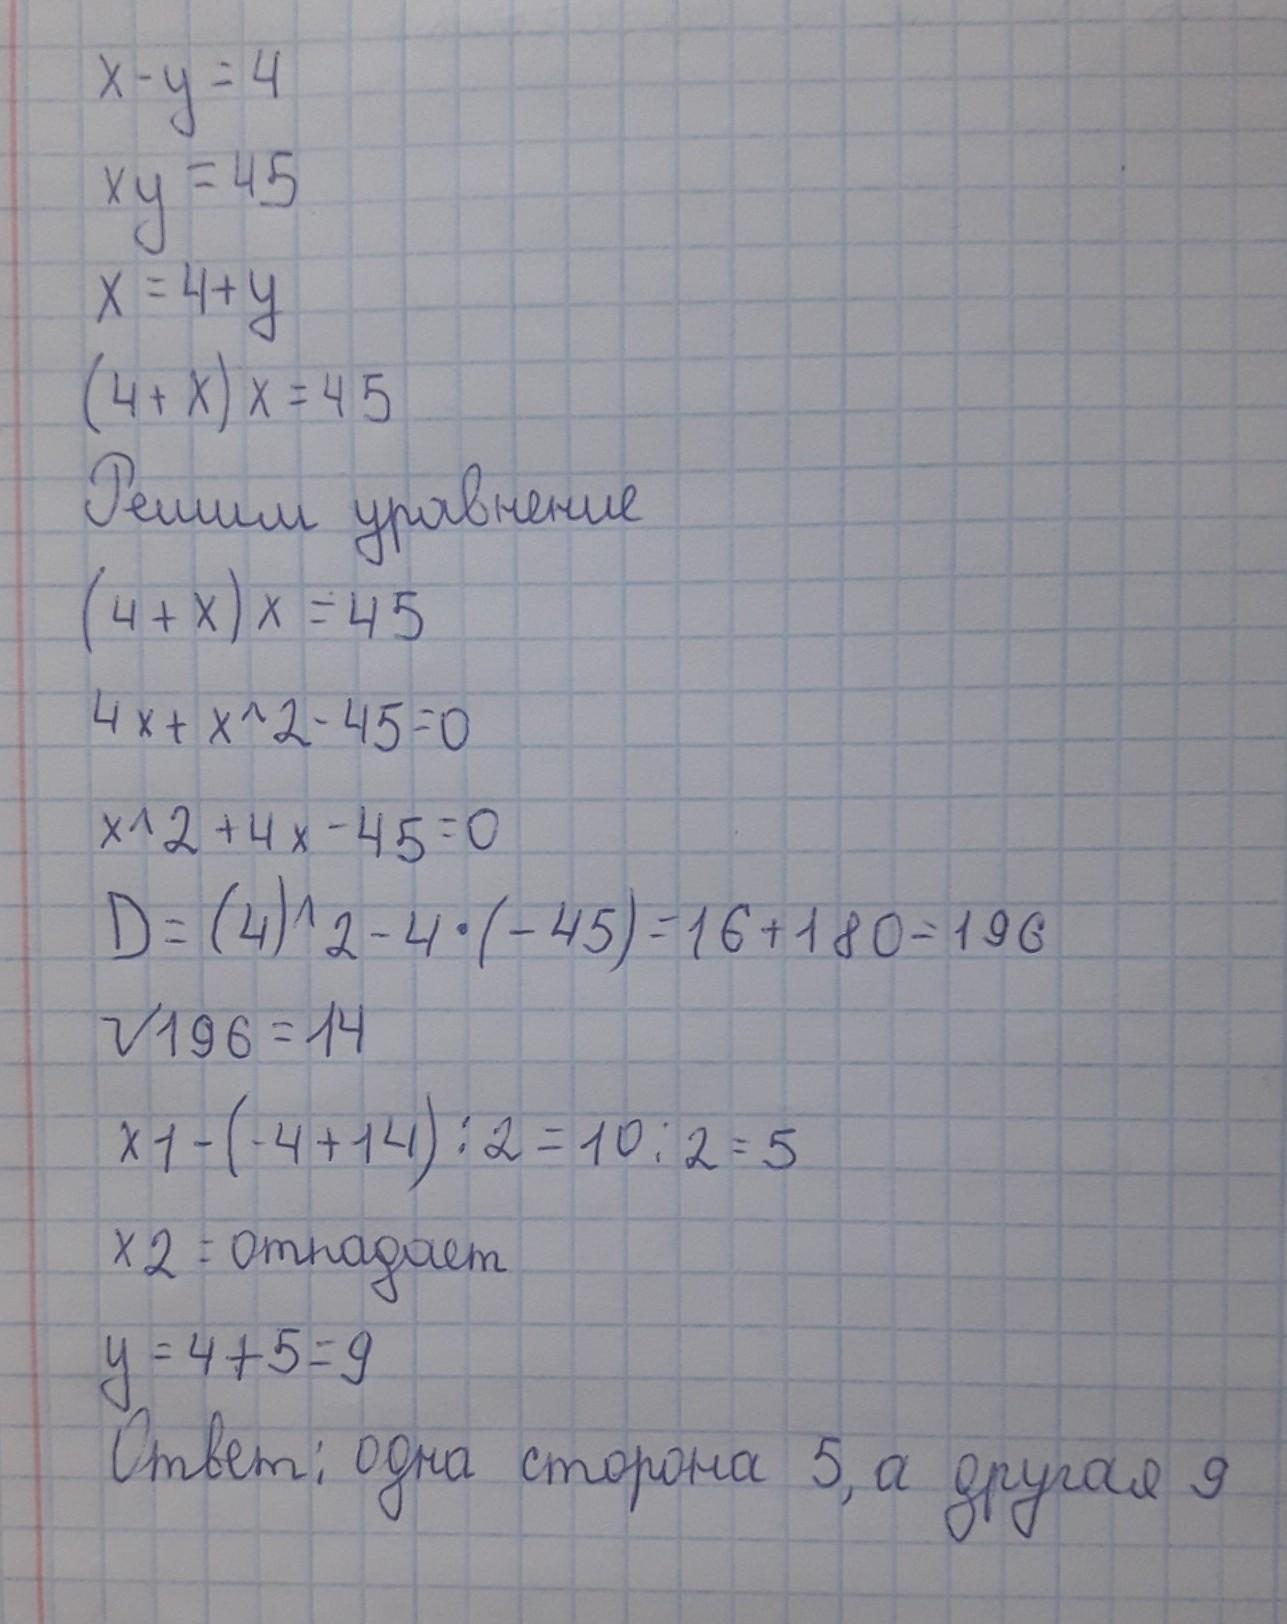 x-y=4
xy=45
x=4+y
(4+x)x=45
Решим уравнение
(4+x)x=45
4x+x^2-45=0
x^2+4x-45=0
D=(4)^2-4·(-45)=16+180=196
√196=14
x1-(-4+14):2=10:2=5
x2=отпадает
y=4+5=9
Ответ: одна сторона 5, а другая 9